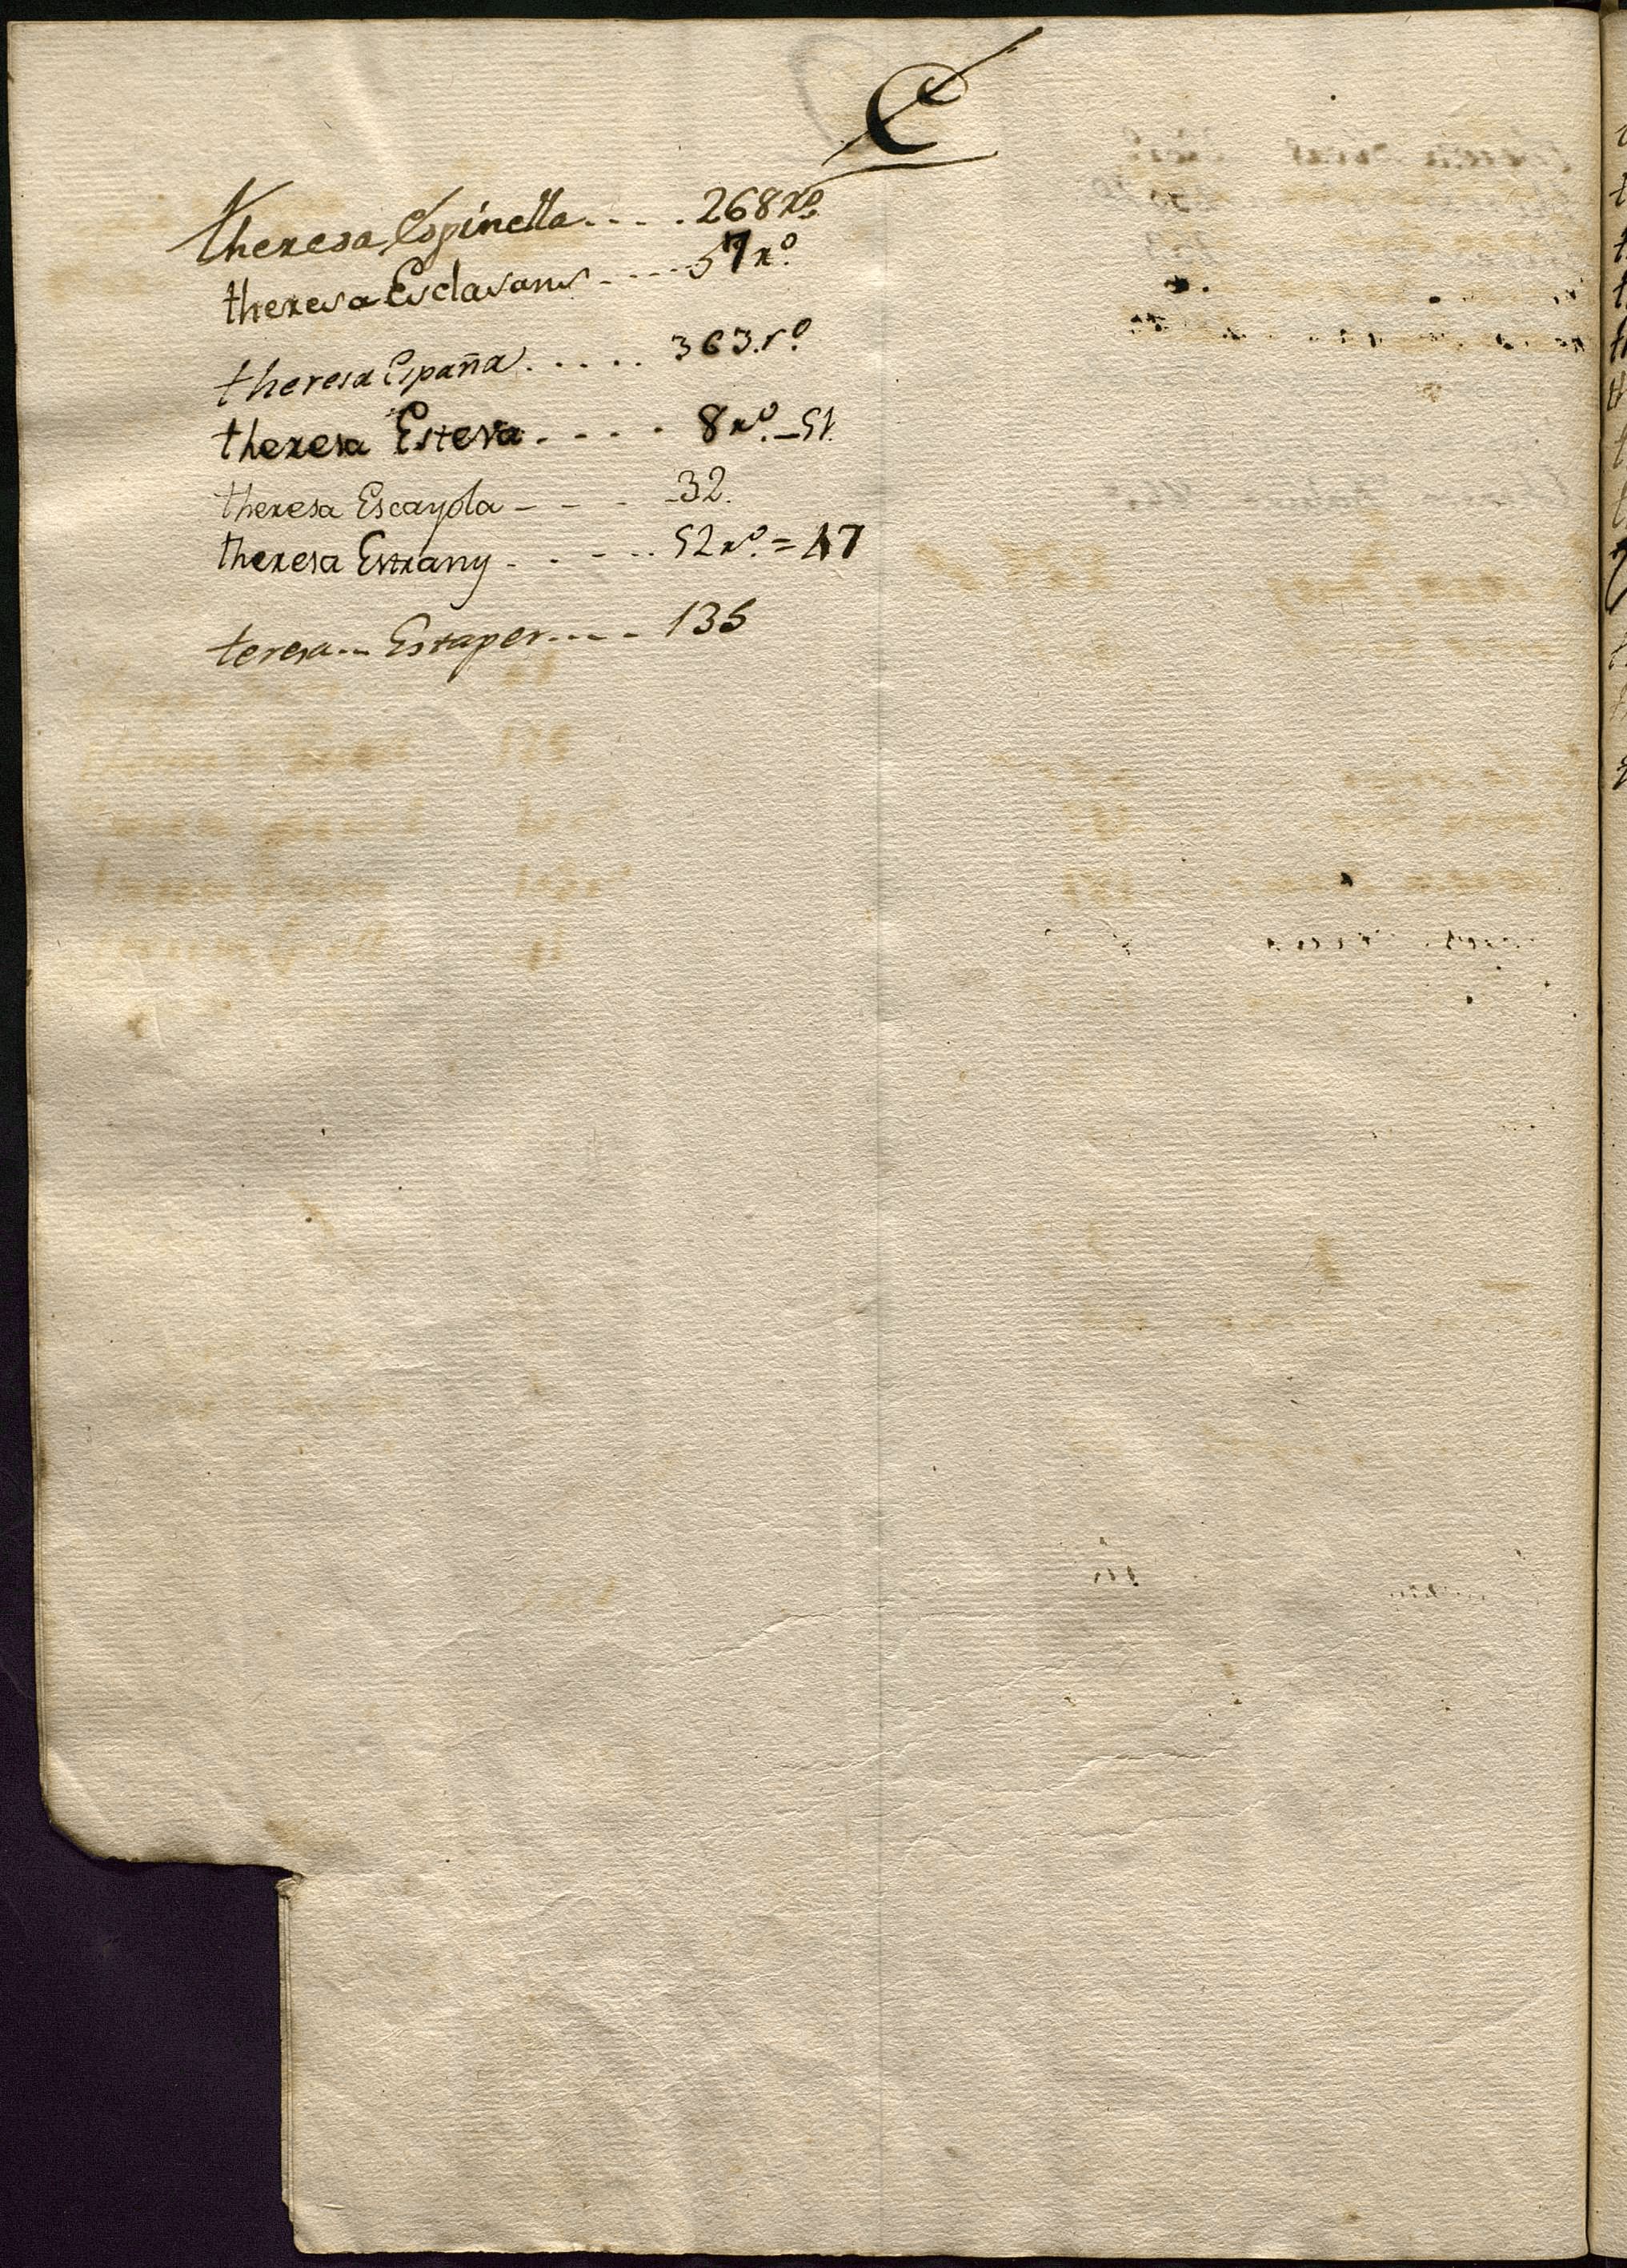 E
theresa Espinella.... 268 ro.
theresa Esclasans ..... 57 ro.
theresa España ..... 363. ro.
theresa Esteva .... 8 ro. - 51.
theresa Escayola - - - 32.
theresa Estrany . . - .. 52 ro. = 47
teresa... Estaper.... 135